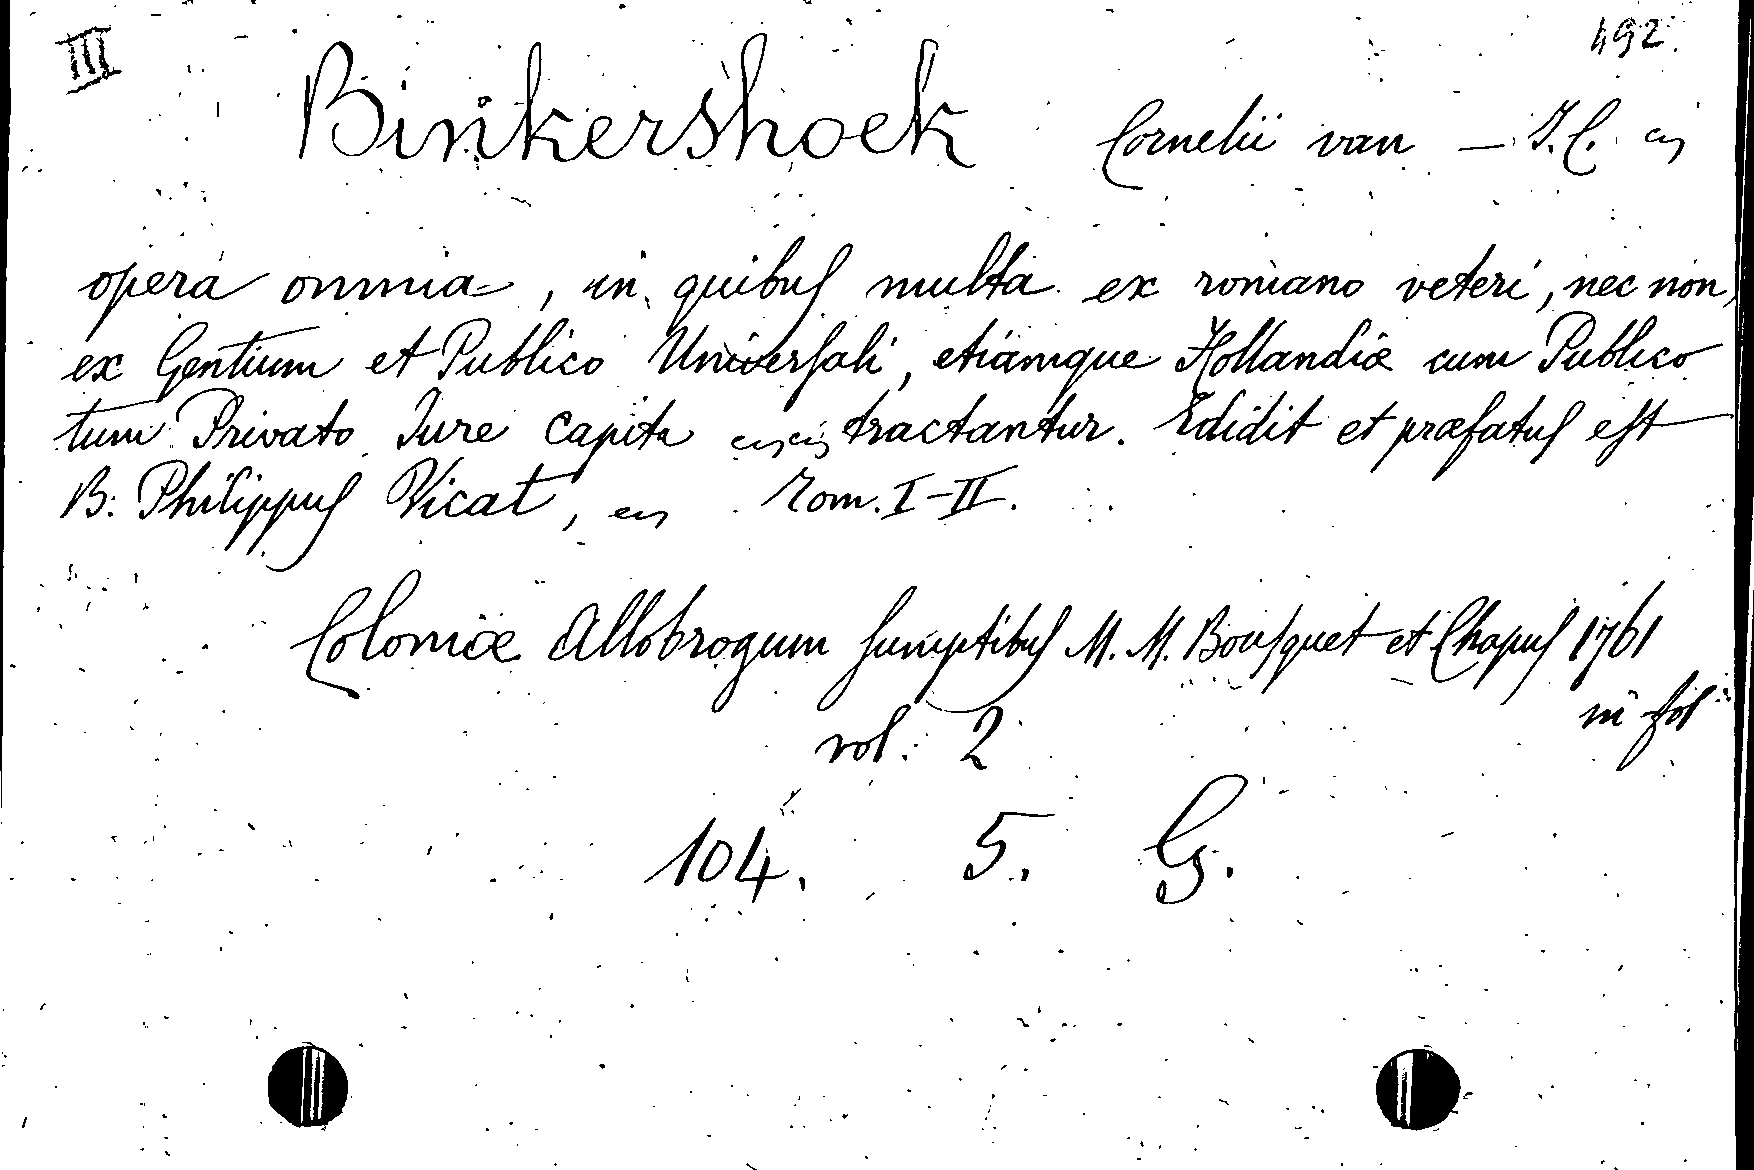 III
492.
Binkershoek Cornelii van — J. C. etc
opera omnia, in quibuſ multa ex romano veteri, nec non,
ex Gentium et Publico Univerſali, etiamque Hollandiæ cum Publico
tum Privato Jure capita tractantur. Edidit et præfatuſ eſt
B. Philippuſ Vicat, etc Tom. I-II.
Coloniæ Allobrogum ſumptibuſ M. M. Bouſquet et Chapuſ 1761
in fol
vol. 2
104. 5. G.